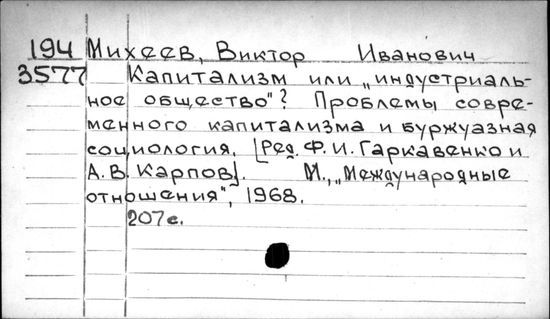 194 Михеев, Виктор Иванович
3577 Капитализм или „индустриаль-
ное общество"? Проблемы совре-
менного капитализма и буржуазная
социология. [Ред. Ф. И. Гаркавенко и
А. В. Карпов]. М., „Международные
отношения", 1968.
207 с.